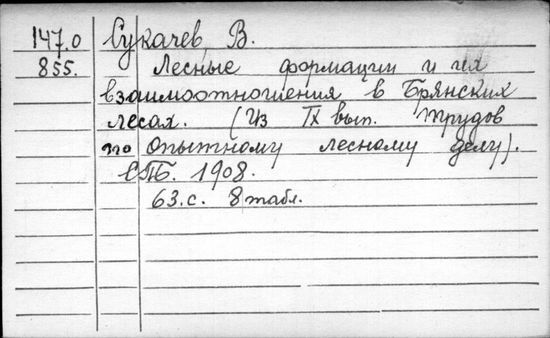 147.0 Сукачев, В.
855. Лесные формации и их
взаимоотношения в Брянских
лесах. (Из IX вып. трудов
по опытному лесному делу).
СПБ. 1908.
63.с. 8 табл.